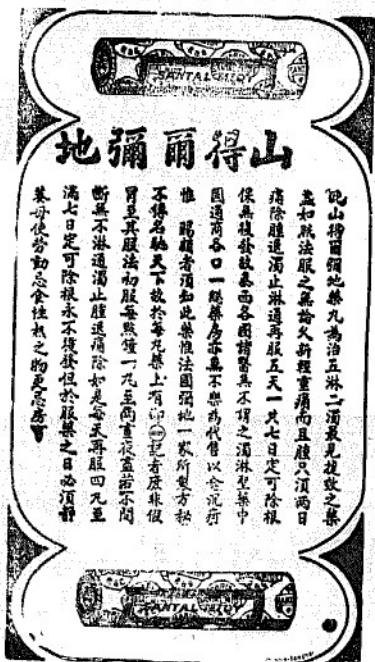 SANTAL MIDY
山得爾彌地
山得爾彌地藥丸為治五淋二濁最見捷效之藥
盖如照法服之無論久新輕重痛而且腫只須兩日
痛除腫退濁止淋通再服五天一共七日定可除根
保無復發故泰西各國諸醫無不謂之濁淋聖藥中
國通商各口一總藥房亦無不樂為代售以全沉疴
惟 賜顧者須知此藥惟法國彌地一家所製方秘
不傳名馳天下故於每丸藥上有印記者庶非假
冒至其服法初服每點鐘一丸至兩晝夜盖若不間
斷無不淋通濁止腫退痛除如是每天再服四丸至
滿七日定可除根永不復發但於服藥之日必須靜
養毋使勞動忌食性熱之物更忌房
SANTAL MIDY